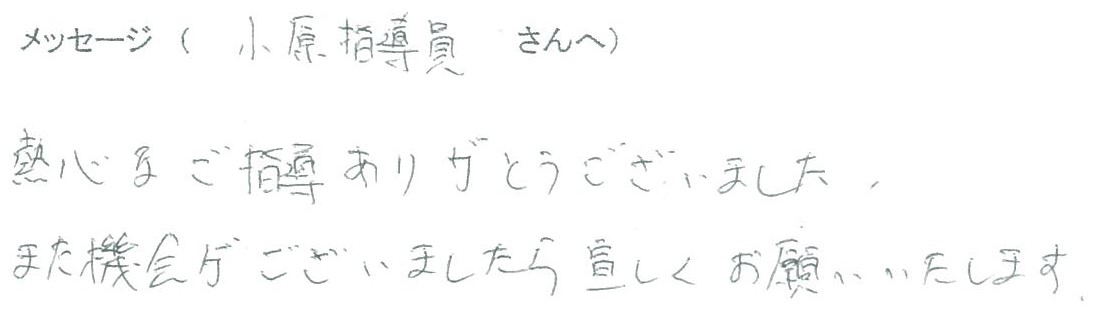 メッセージ（ 小原指導員 さんへ）
熱心なご指導ありがとうございました。
また機会がございましたら宜しくお願いいたします。